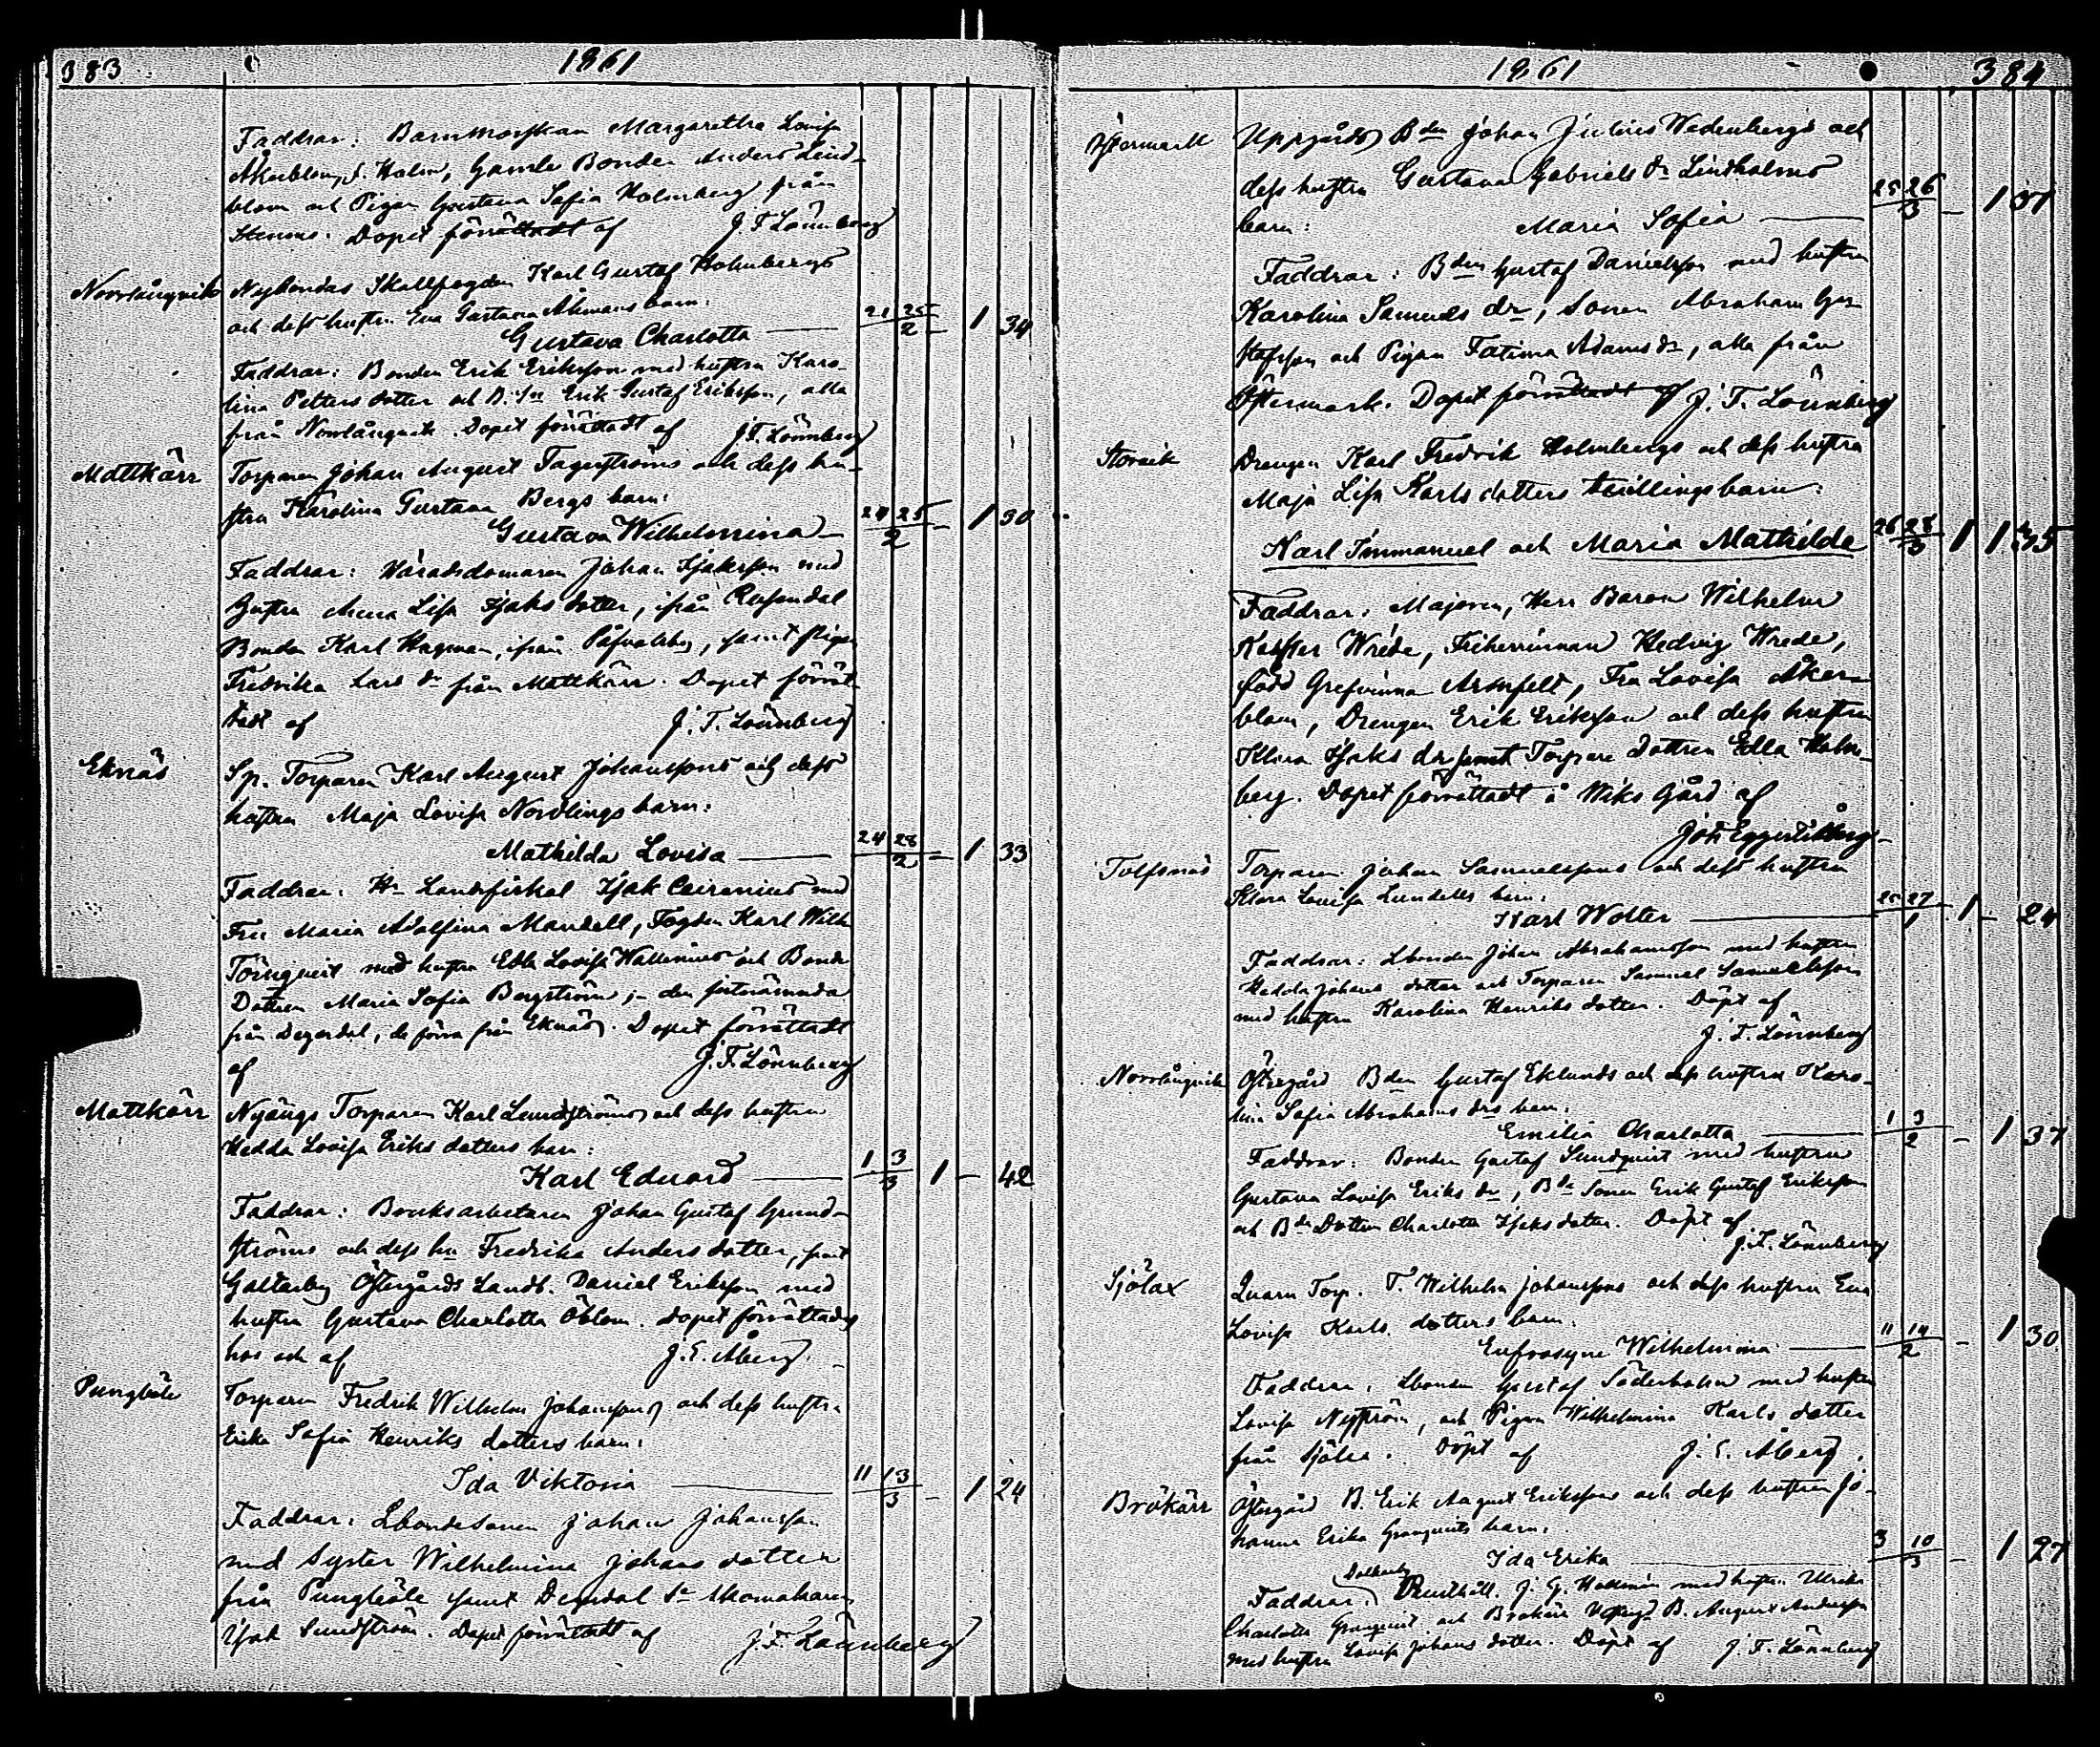 383 1861
Faddrar: Barnmorskan Margaretha Lovisa
Åkerblom, S. Holm, Gamle Bonden Anders Lind-
blom och Pigan Gustava Sofia Holmberg från
Stenmo. Dopet förrättadt af J F Lönnberg
Norrlångvik Nybondas Skallfogden Karl Gustaf Holmbergs
och dess hustru Eva Gustava Åhmans barn:
Gustava Charlotta — 21 25/2 — 1 34
Faddrar: Bonden Erik Eriksson med hustru Karo-
lina Petters dotter och B. Sn Erik Gustaf Eriksson, alla
från Norrlångvik. Dopet förrättadt af J F. Lönnberg
Mattkärr Torparen Johan August Fagerströms och dess hu-
stru Karolina Gustava Bergs barn:
Gustava Wilhelmina — 24 25/2 — 1 30
Faddrar: Häradsdomaren Johan Isaksson med
hustru Anna Lisa Isaks dotter, ifrån Rosendal
Bonden Karl Hagman, ifrån Påfvalsby, samt Pigan
Fredrika Lars dr från Mattkärr. Dopet förrät-
tadt af J. F. Lönnberg
Eknäs Sp. Torparen Karl August Johanssons och dess
hustru Maja Lovisa Nordlings barn:
Mathilda Lovisa — 24 28/2 — 1 33
Faddrar: Hr Landsfiskal Isak Cairenius med
Fru Maria Adolfina Mandell, Fogden Karl Wilh
Törnqvist med hustru Edla Lovisa Wallenius och Bonde
Dottren Maria Sofia Bergström; den sistnämnda
från Degerdal, de förra från Eknäs. Dopet förrättadt
af J. F. Lönnberg
Mattkärr Nyängs Torparen Karl Lundströms och dess hustru
Hedda Lovisa Eriks dotters barn:
Karl Eduard — 1 3/3 1 — 42
Faddrar: Bruksarbetaren Johan Gustaf Grund-
ströms och dess hu Fredrika Anders dotter, samt
Galtarby Östergårds Landb. Daniel Eriksson med
hustru Gustava Charlotta Öblom. Dopet förrättades
hos och af J. E. Åberg.
Pungböle Torparen Fredrik Wilhelm Johanssons och dess hustru
Erika Sofia Henriks dotters barn:
Ida Viktoria — 11 13/3 — 1 24
Faddrar: Lbondesonen Johan Johansson
med Syster Wilhelmina Johans dotter
från Pungböle samt Degerdal Sn Skomakaren
Isak Sundström. Dopet förrättadt af J. F. Lönnberg
1861 384
Östermark Uppgårds Bden Johan Julius Wedenbergs och
dess hustru Gustava Gabriels dr Lindholms
barn: Maria Sofia — 25 26/3 — 1 31
Faddrar: Bden Gustaf Danielsson med hustru
Karolina Samuels dr, Sonen Abraham Gu-
stafsson och Pigan Fatima Adams dr, alla från
Östermark. Dopet förrättadt af J. F. Lönnberg
Storvik Drengen Karl Fredrik Holmbergs och dess hustru
Maja Lisa Karls dotters tvillingsbarn:
Karl Immanuel och Maria Mathilda 26 28/3 1 1 35
Faddrar: Majoren, Herr Baron Wilhelm
Kasper Wrede, Friherrinnan Hedvig Wrede,
född Grefvinna Armfelt, Fru Lovisa Åker-
blom, Drengen Erik Eriksson och dess hustru
Klara Isaks dr samt Torpare dottren Edla Holm-
berg. Dopet förrättadt å Wiks Gård af
Joh Eggert Åberg
Tolfsnäs Torparen Johan Samuelssons och dess hustru
Klara Lovisa Lundells barn:
Karl Wolter — 25 27/1 1 — 24
Faddrar: Lbonden Johan Abrahamsson med hustru
Hedda Johans dotter och Torparen Samuel Samuelsson
med hustru Karolina Henriks dotter. Döpt af
J. F. Lönnberg
Norrlångvik Östregård Bden Gustaf Eklunds och dess hustru Karo-
lina Sofia Abrahams drs barn:
Emilia Charlotta — 1 3/2 — 1 37
Faddrar: Bonden Gustaf Sundqvist med hustru
Gustava Lovisa Eriks dr, Bde Sonen Erik Gustaf Eriksson
och Bde Dottren Charlotta Isaks dotter. Döpt af
J. F. Lönnberg
Sjölax Quarn Torp. F. Wilhelm Johanssons och dess hustru Eva
Lovisa Karls dotters barn:
Eufrosyne Wilhelmina — 11 14/2 — 1 30
Faddrar: Lbonden Gustaf Söderholm med hustru
Lovisa Nyström, och Pigan Wilhelmina Karls dotter
från Sjölax. Döpt af J. E. Åberg.
Brökärr Östergård B. Erik August Erikssons och dess hustru Jo-
hanna Erika Granqvists barn:
Ida Erika — 3 10/3 — 1 27
Faddrar: Dalkarby Rusthåll. J. G. Hallman med hustru Ulrika
Charlotta Granqvist och Brökärr B. August Andersson
med hustru Lovisa Johans dotter. Döpt af J. F. Lönnberg